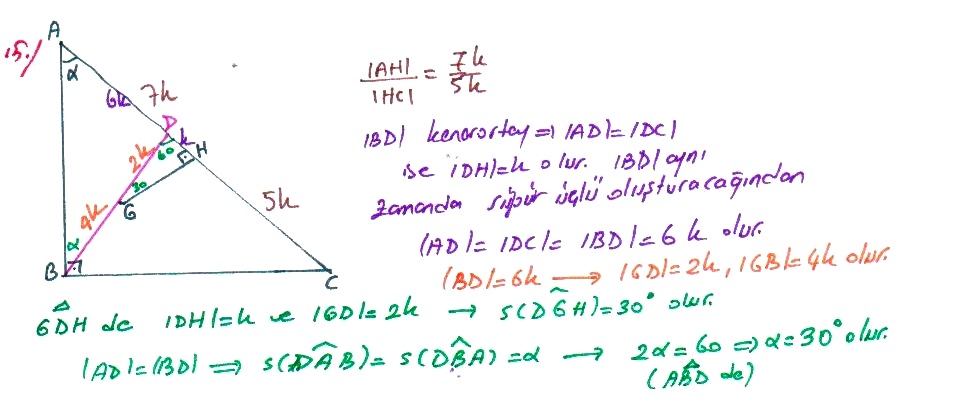 15./
A
α
6k
7k
D
k
60
H
2k
30
G
5k
4k
α
B
C
|AH| / |HC| = 7k / 5k
|BD| kenarortay ⇒ |AD|=|DC|
ise |DH|=k olur. |BD| aynı
zamanda süper üçlü oluşturacağından
|AD|=|DC|=|BD|=6k olur.
|BD|=6k → |GD|=2k, |GB|=4k olur.
GDH de |DH|=k ve |GD|=2k → s(DGH)=30° olur.
|AD|=|BD| ⇒ s(DAB)=s(DBA)=α → 2α=60 ⇒ α=30° olur.
(ABD de)